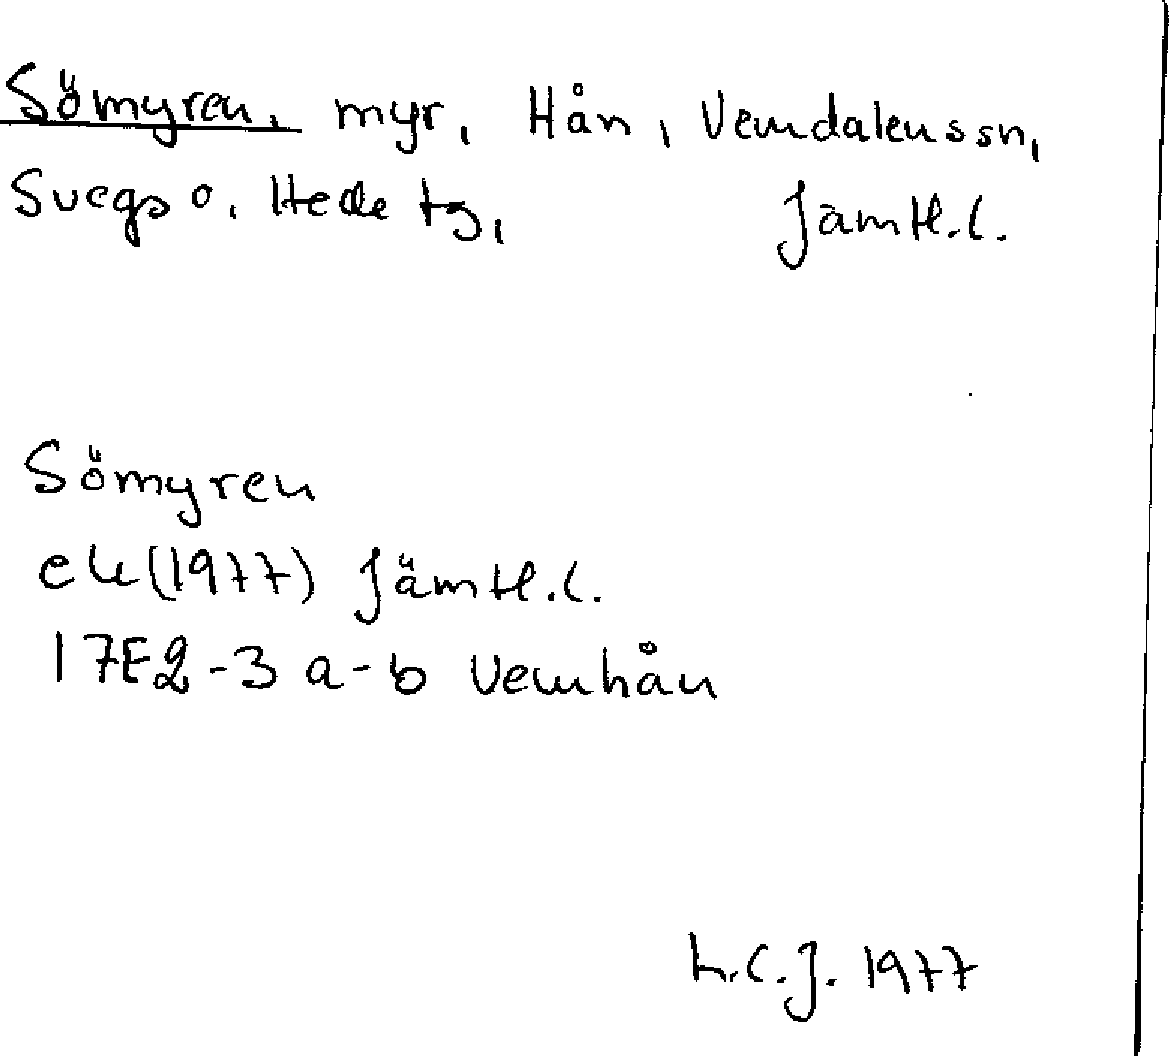 Sömyren, myr, Hån, Vemdalens sn,
Svegs o. Hede tg, Jämtl.l.
Sömyren
ek(1977) Jämtl.l.
17E2-3 a-b Vemhån
L.C.J. 1977